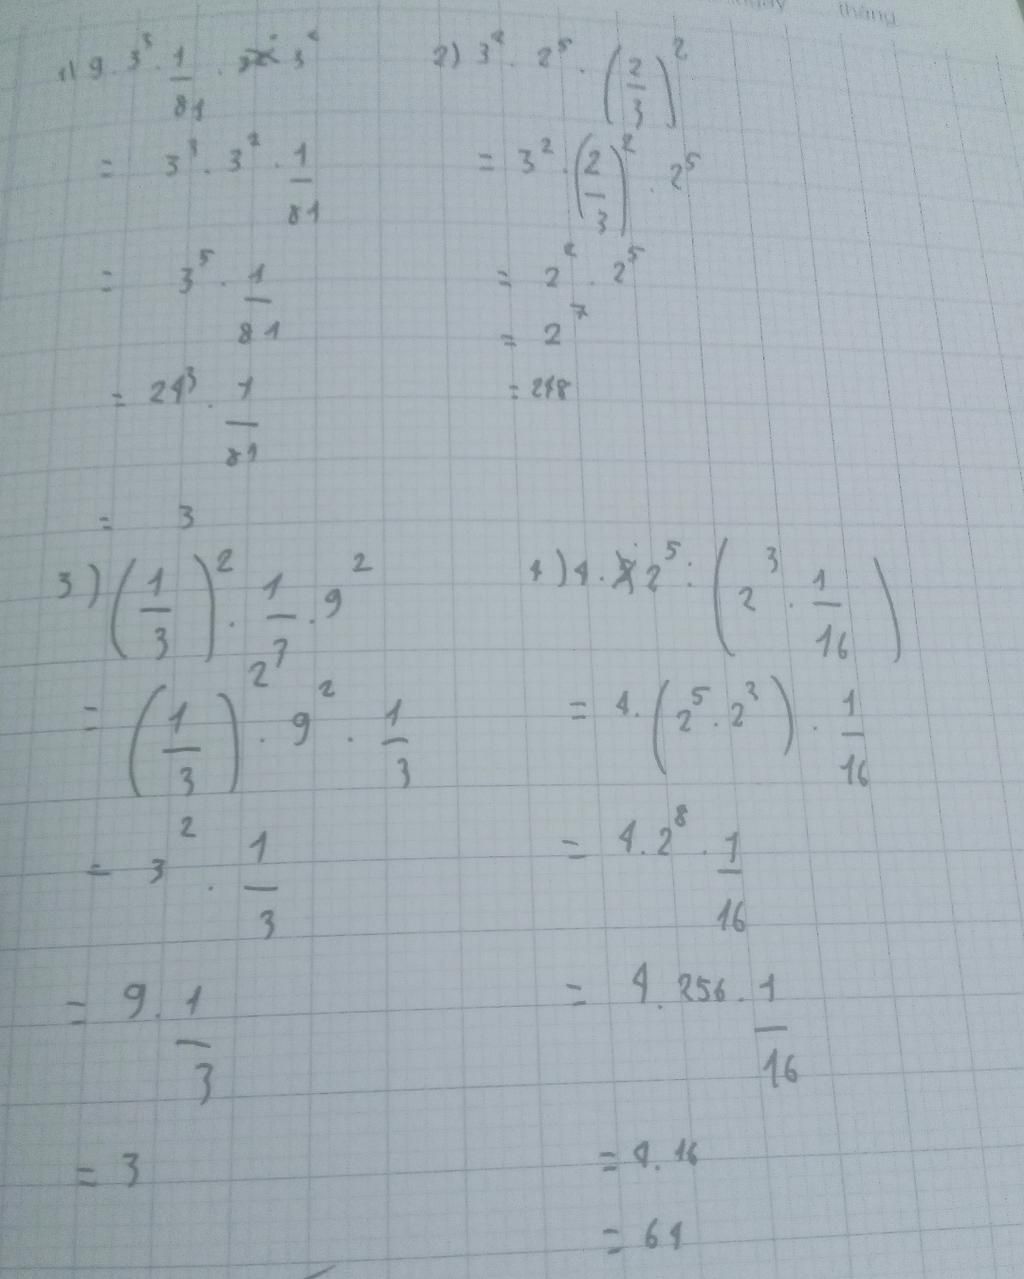 tháng
1) 9 . 3³ . 1/81 . 3²
= 3³ . 3² . 1/81
= 3⁵ . 1/81
= 243 . 1/81
= 3
2) 3² . 2⁵ . (2/3)²
= 3² . (2/3)² . 2⁵
= 2² . 2⁵
= 2⁷
= 218
3) (1/3)² . 1/3 . 9²
= (1/3)² . 9² . 1/3
= 3² . 1/3
= 9 . 1/3
= 3
4) 4 . 2⁵ : (2³ . 1/16)
= 4 . (2⁵ . 2³) . 1/16
= 4 . 2⁸ . 1/16
= 4 . 256 . 1/16
= 4 . 16
= 64